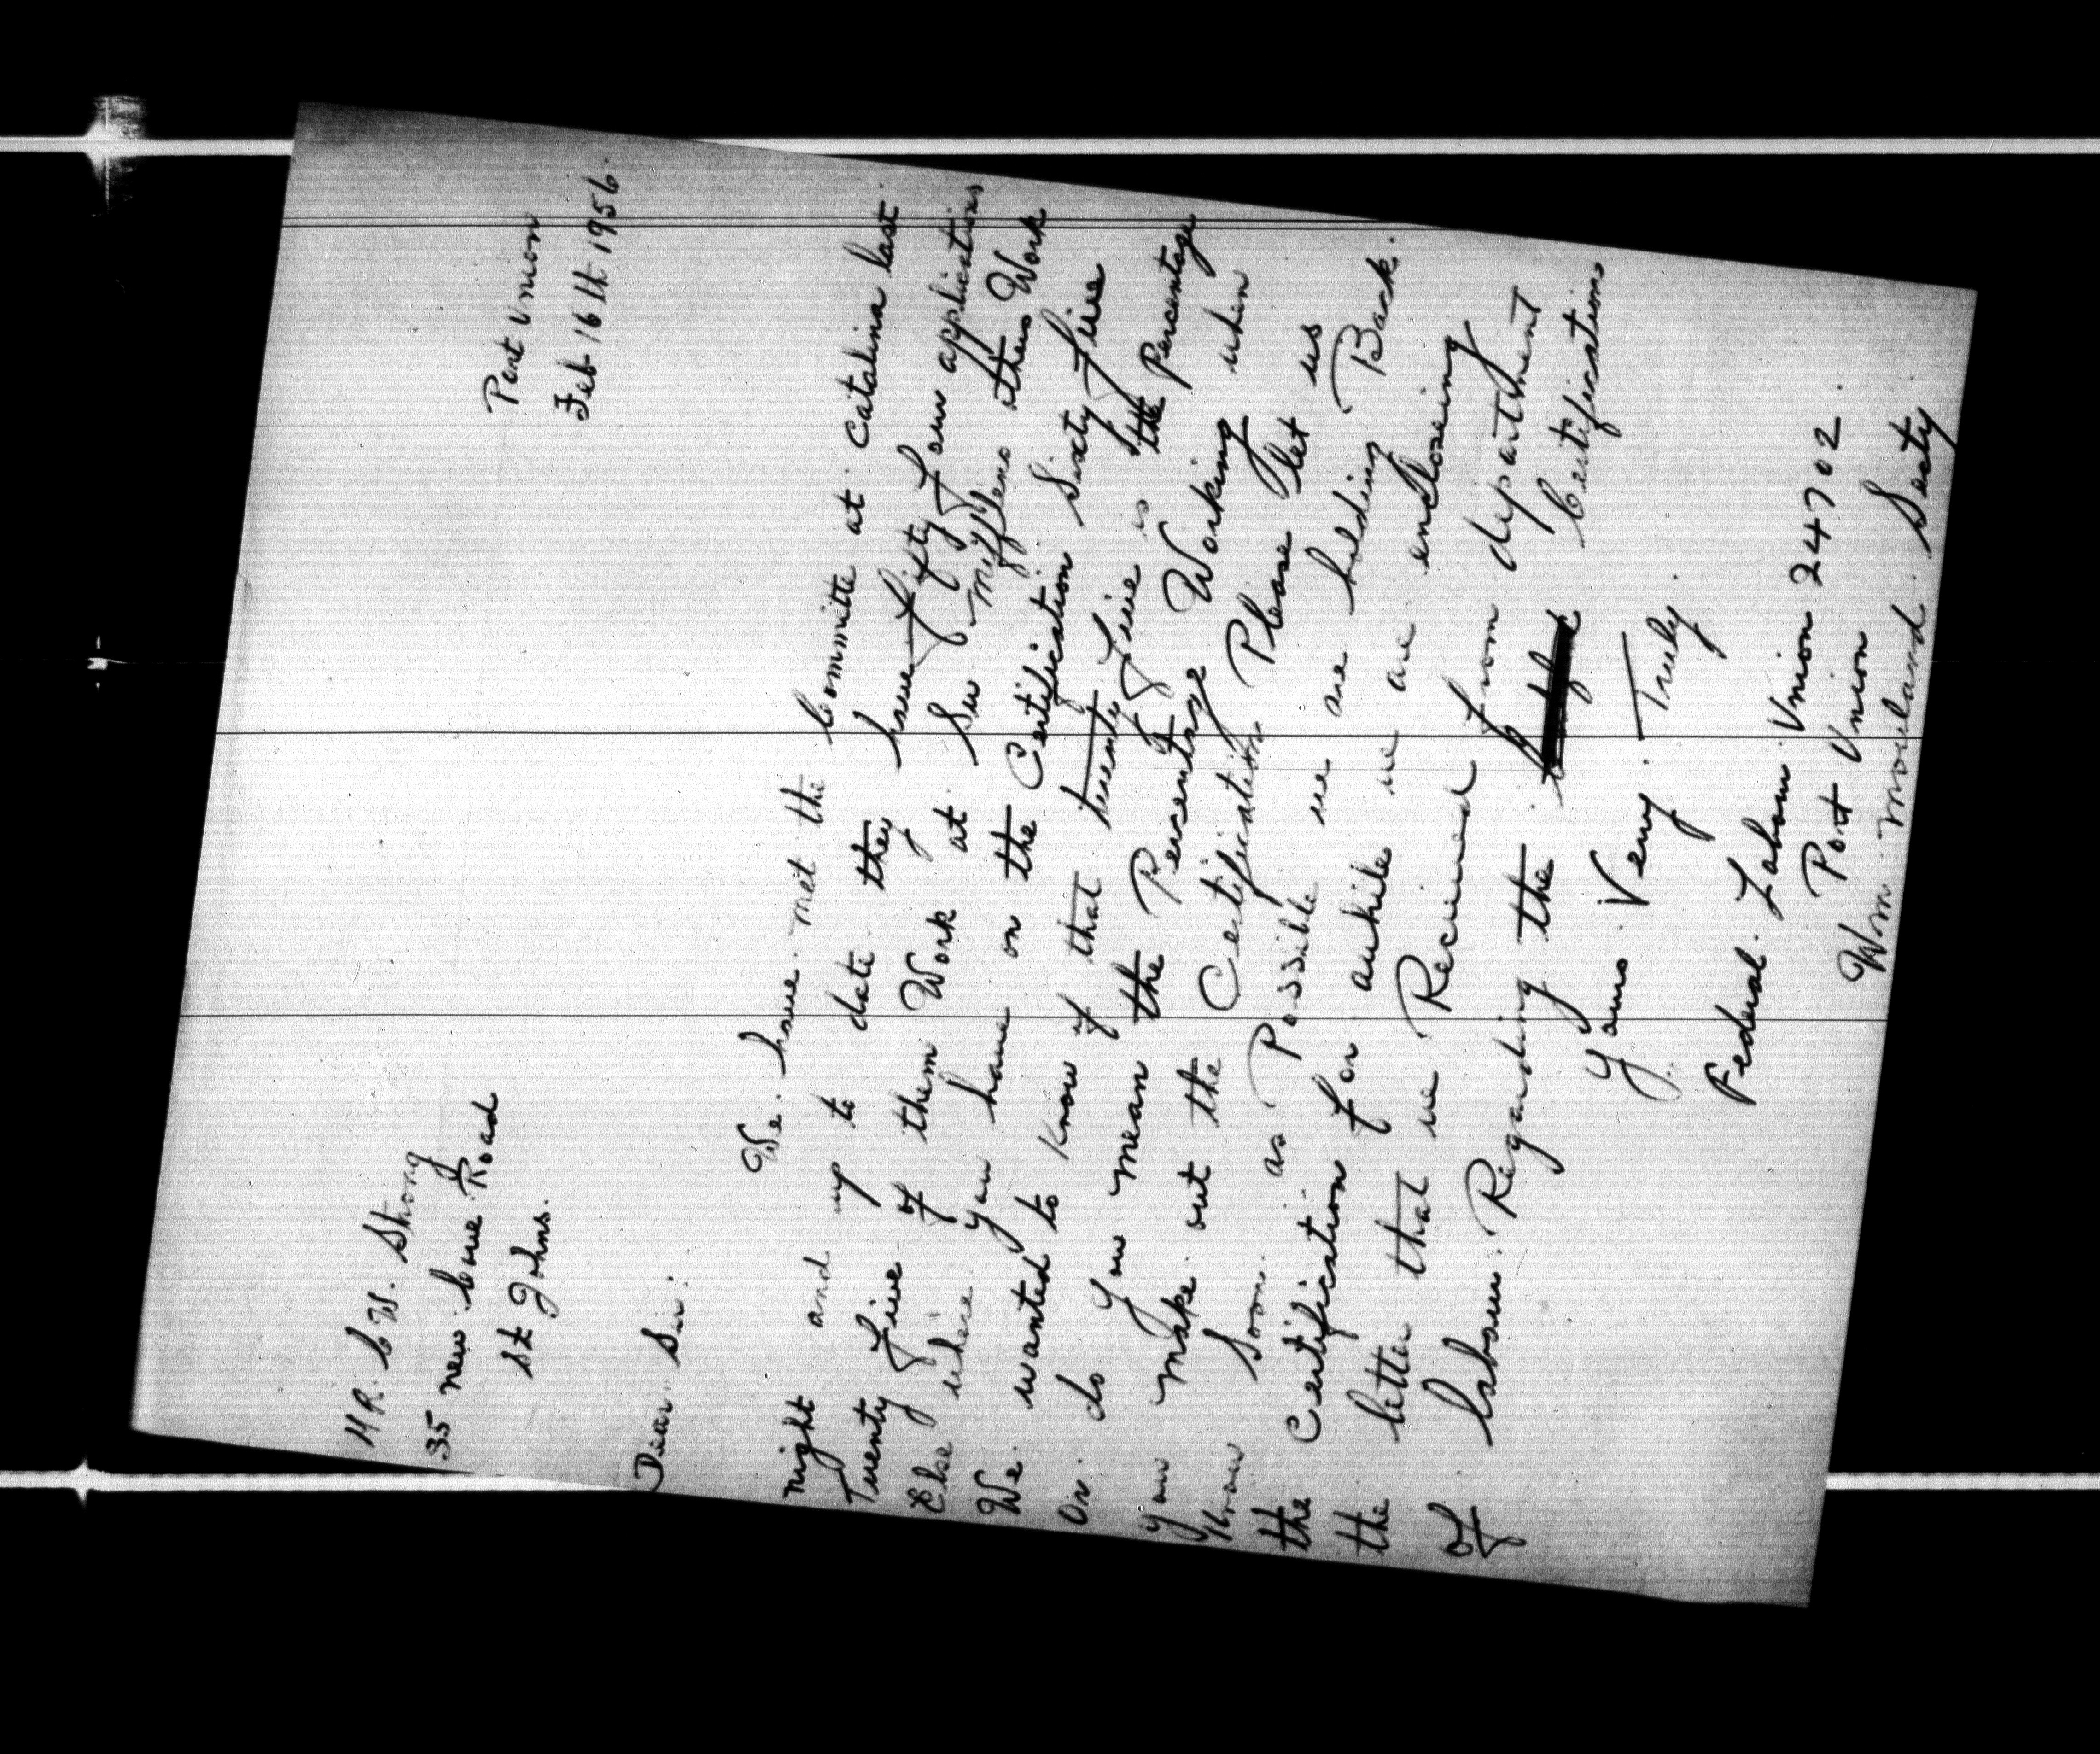 Port Union
Feb 16th 1956.
MR. C W. Strong
35 new Cove Road
St Johns.
Dear. Sir:
We. have. met the Committe at Catalina last
night and up to date. they have fifty four applications
Twenty five of them Work at Sir mifflens others Work
Else where. You have on the Certification Sixty five
We. wanted to Know if that twenty five is the Percentage
Or. do you mean the Percentage Working when
you make. out the Certification Please let us
Know Soon. as Possible we are holding Back.
the Certification for awhile we are enclosing
the letter that we Received from department
of labour. Regarding the Certification
Yours. Very. Truly.
Federal. Labour. Union 24702.
Port Union
Wm. Mouland. Secty